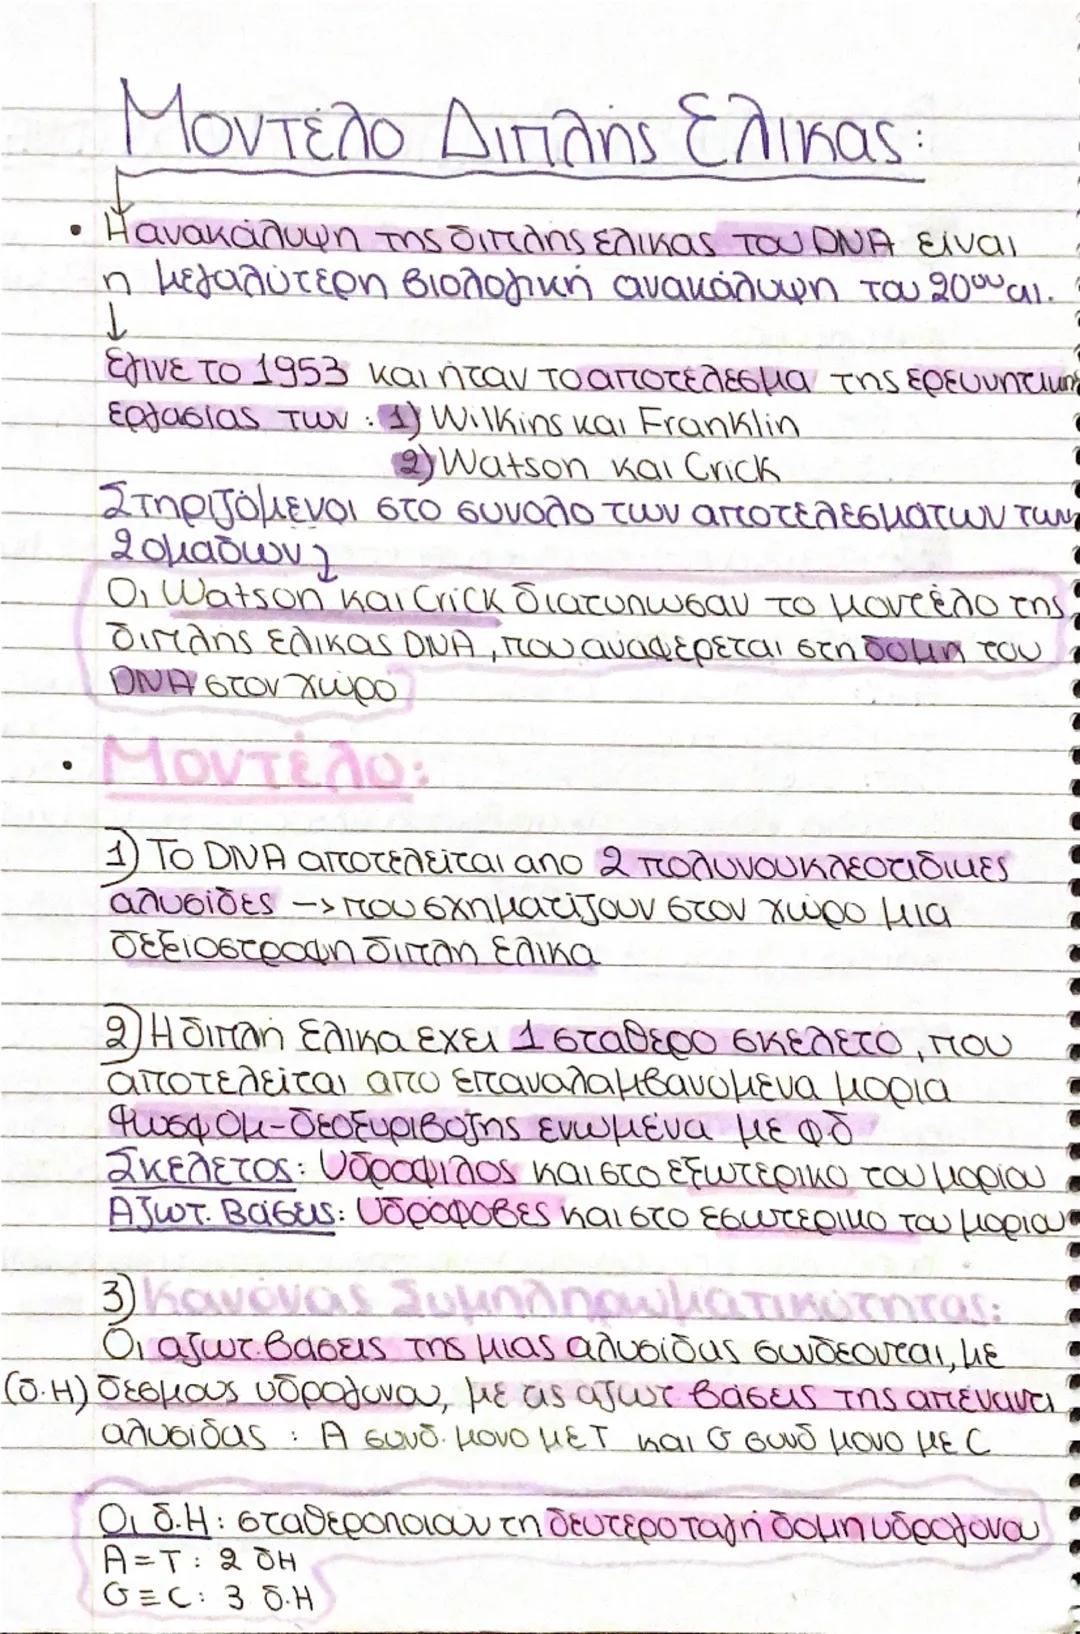 Μοντέλο Διπλής Ελικας:
• Η ανακάλυψη της διπλής ελικας του DNA ειναι
η μεγαλύτερη βιολογική ανακάλυψη του 20ου αι.
↓
Εγινε το 1953 και ήταν το αποτέλεσμα της ερευνητικής
εργασίας των : 1) Wilkins και Franklin
2) Watson και Crick
Στηριζόμενοι στο συνολο των αποτελεσματων των
2 ομαδων
Οι Watson και Crick διατυπωσαν το μοντέλο της
διπλής ελικας DNA, που αναφερεται στη δομη του
DNA στον χώρο
• Μοντέλο:
1) Το DNA αποτελείται απο 2 πολυνουκλεοτιδικες
αλυσίδες -> που σχηματίζουν στον χώρο μια
δεξιοστροφη διπλη ελικα
2) Η διπλή ελικα εχει 1 σταθερο σκελετό, που
αποτελείται απο επαναλαμβανόμενα μορια
Φωσφ Ομ-δεοξυριβοζης ενωμένα με φ.δ
Σκελετος: Υδροφιλος και στο εξωτερικο του μοριου
Αζωτ. Βασεις: Υδροφοβες και στο εσωτερικο του μοριου
3) Κανόνας Συμπληρωματικότητας:
Οι αζωτ. βασεις της μιας αλυσίδας συνδεονται, με
(δ.Η) δεσμους υδρογονου, με τις αζωτ βασεις της απέναντι
αλυσιδας : Α συνδ. μονο με Τ και G συνδ μονο με C
Οι δ.Η: σταθεροποιουν τη δευτεροταγή δομη υδρογονου
A=T: 2 δΗ
G≡C: 3 δ.Η